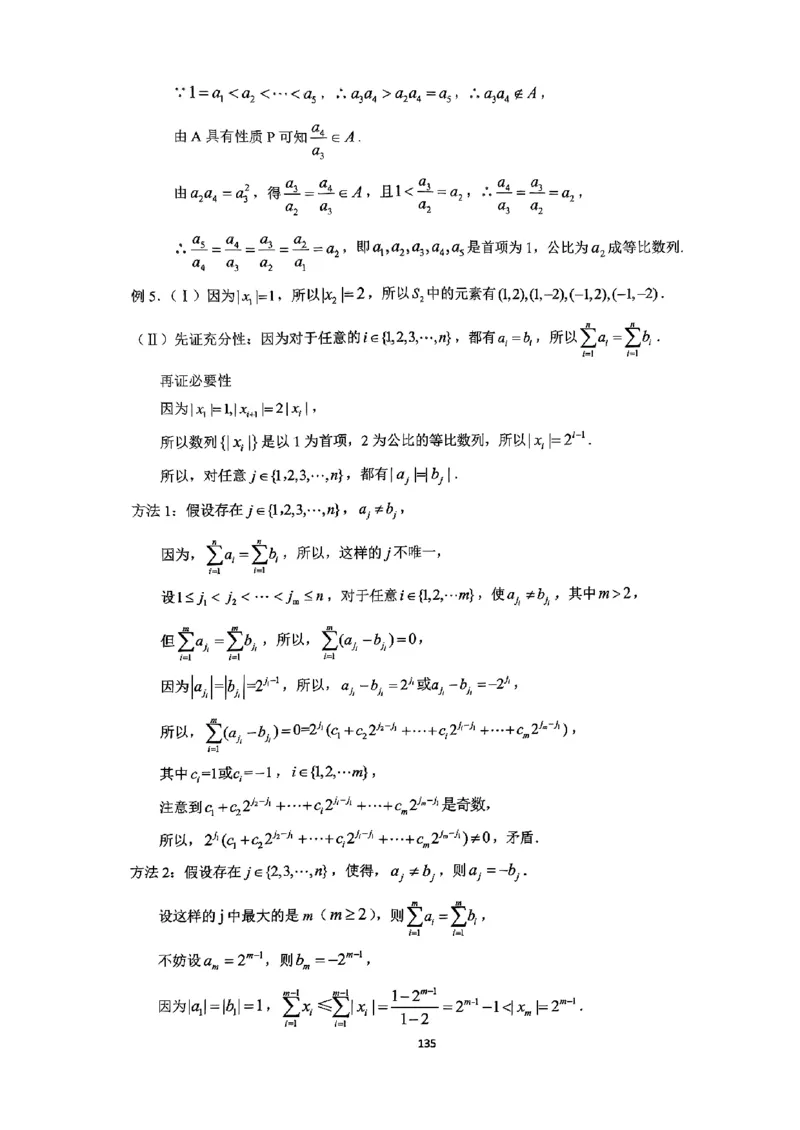 ∵1=a₁<a₂<⋯<a₅，∴a₃a₄>a₂a₄=a₅，∴a₃a₄∉A，
由 A 具有性质 P 可知 a₄/a₃ ∈ A.
由a₂a₄=a₃²，得 a₃/a₂ = a₄/a₃ ∈A，且1< a₃/a₂ =a₂，∴ a₄/a₃ = a₃/a₂ =a₂，
∴ a₅/a₄ = a₄/a₃ = a₃/a₂ = a₂/a₁ =a₂，即a₁,a₂,a₃,a₄,a₅是首项为 1，公比为a₂成等比数列.
例 5.（Ⅰ）因为|x₁|=1，所以|x₂|=2，所以S₂中的元素有(1,2),(1,−2),(−1,2),(−1,−2)．
（Ⅱ）先证充分性：因为对于任意的i∈{1,2,3,⋯,n}，都有aᵢ=bᵢ，所以∑_{i=1}^{n}aᵢ=∑_{i=1}^{n}bᵢ．
再证必要性
因为|x₁|=1,|x_{i+1}|=2|xᵢ|，
所以数列{|xᵢ|}是以 1 为首项，2 为公比的等比数列，所以|xᵢ|=2^{i−1}．
所以，对任意j∈{1,2,3,⋯,n}，都有|a_j|=|b_j|．
方法 1：假设存在j∈{1,2,3,⋯,n}，a_j≠b_j，
因为，∑_{i=1}^{n}aᵢ=∑_{i=1}^{n}bᵢ，所以，这样的j不唯一，
设1≤j₁<j₂<⋯<j_m≤n，对于任意i∈{1,2,⋯m}，使a_{jᵢ}≠b_{jᵢ}，其中m>2，
但∑_{i=1}^{m}a_{jᵢ}=∑_{i=1}^{m}b_{jᵢ}，所以，∑_{i=1}^{m}(a_{jᵢ}−b_{jᵢ})=0，
因为|a_{jᵢ}|=|b_{jᵢ}|=2^{jᵢ−1}，所以，a_{jᵢ}−b_{jᵢ}=2^{jᵢ}或a_{jᵢ}−b_{jᵢ}=−2^{jᵢ}，
所以，∑_{i=1}^{m}(a_{jᵢ}−b_{jᵢ})=0=2^{j₁}(c₁+c₂2^{j₂−j₁}+⋯+cᵢ2^{jᵢ−j₁}+⋯+c_m2^{j_m−j₁})，
其中cᵢ=1或cᵢ=−1，i∈{1,2,⋯m}，
注意到c₁+c₂2^{j₂−j₁}+⋯+cᵢ2^{jᵢ−j₁}+⋯+c_m2^{j_m−j₁}是奇数，
所以，2^{j₁}(c₁+c₂2^{j₂−j₁}+⋯+cᵢ2^{jᵢ−j₁}+⋯+c_m2^{j_m−j₁})≠0，矛盾．
方法 2：假设存在j∈{2,3,⋯,n}，使得，a_j≠b_j，则a_j=−b_j．
设这样的 j 中最大的是 m（m≥2），则∑_{i=1}^{m}aᵢ=∑_{i=1}^{m}bᵢ，
不妨设a_m=2^{m−1}，则b_m=−2^{m−1}，
因为|a₁|=|b₁|=1，∑_{i=1}^{m−1}xᵢ≤∑_{i=1}^{m−1}|xᵢ|= (1−2^{m−1})/(1−2) =2^{m−1}−1<|x_m|=2^{m−1}．
135